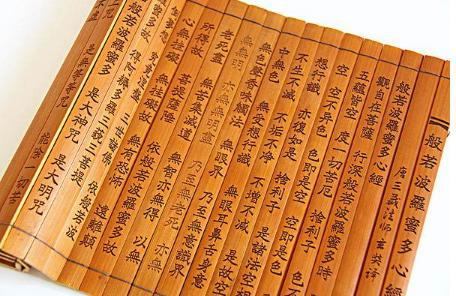 般若波羅蜜多心經
般若波羅蜜多心經 唐三藏法師玄奘譯
觀自在菩薩 行深般若波羅蜜多時
五蘊皆空 度一切苦厄 捨利子
空 空不異色 色即是空 空即是色
想行識 亦復如是 捨利子 是諸法空相
不生不滅 不垢不淨 不增不減 是故空
中無色 無受想行識 無眼耳鼻舌身意
無色聲香味觸法 無眼界 乃至無意識界
無無明 亦無無明盡 乃至無老死 亦無
老死盡 無苦集滅道 無智亦無得 以無
所得故 菩提薩埵 依般若波羅蜜多故
心無掛礙 無掛礙故 無有恐怖 遠離顛
三世諸佛 依般若波
得阿耨多羅三藐三菩提
般若波羅蜜多 是大神咒 是大明咒
是無等等咒 能除一切苦